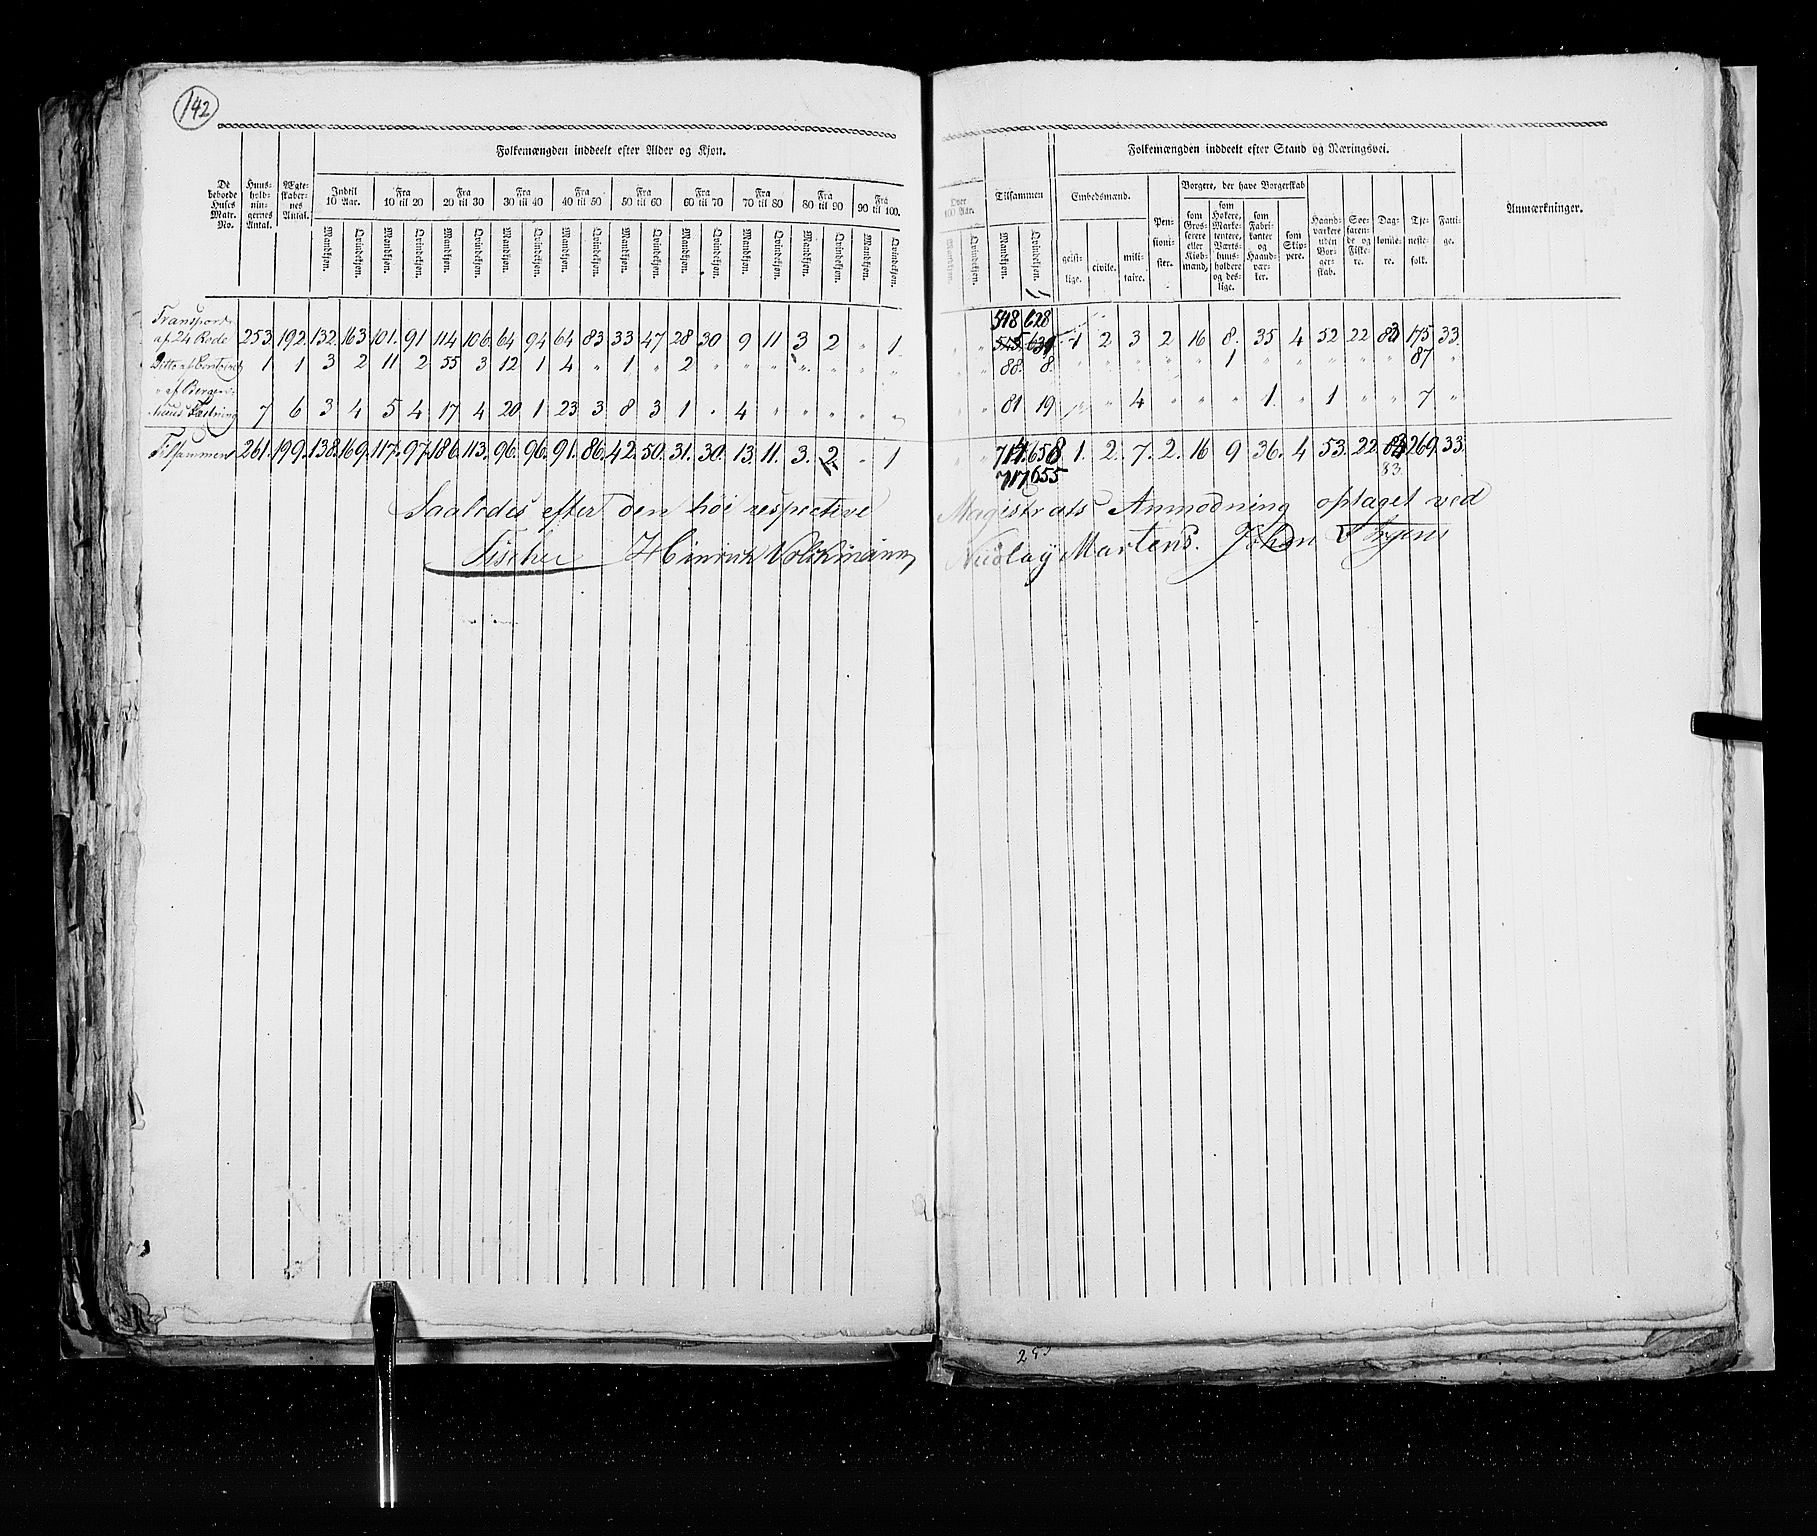 142
Folkemængden inddeelt efter Alder og Kjøn.
De beboede Huses Matr. No.
Huus-holdningernes Antal.
Ægteskabernes Antal.
Indtil 10 Aar.
Fra 10 til 20
Fra 20 til 30
Fra 30 til 40
Fra 40 til 50
Fra 50 til 60
Fra 60 til 70
Fra 70 til 80
Fra 80 til 90
Fra 90 til 100.
Mandkjøn. Qvindekjøn. Mandkjøn. Qvindekjøn. Mandkjøn. Qvindekjøn. Mandkjøn. Qvindekjøn. Mandkjøn. Qvindekjøn. Mandkjøn. Qvindekjøn. Mandkjøn. Qvindekjøn. Mandkjøn. Qvindekjøn. Mandkjøn. Qvindekjøn. Mandkjøn. Qvindekjøn.
Over 100 Aar.
Mandkjøn. Qvindekjøn.
Tilsammen
Mandkjøn. Qvindekjøn.
Folkemængden inddeelt efter Stand og Næringsvei.
Embedsmænd.
geistlige. civile. militaire.
Pensionister.
Borgere, der have Borgerskab
som Grosserere eller Kiøbmænd,
som Hokere, Marketentere, Værtshuusholdere og deslige.
som Fabrikanter og Haandværker.
som Skippere.
Haandværkere uden Borgerskab.
Søefarende og Fiskere.
Daglønnere.
Tjenestefolk.
Fattige.
Anmærkninger.
Transport 548 628
af 24 Rode 253 192. 132. 163 101. 91 114 106. 64 94 64 83 33 47 28 30 9 11 3 2 " 1 " " 545 634 1 2 3 2 16 8. 35 4 52 22 83 175 33.
Ditto af 1 1 3 2 11 2 55 3 12 1 4 " 1 " 2 " " " " " " " " " 88. 8. " " " " " 1 " " " " " 87 "
" af Bergen-
huus Fæstning 7 6 3 4 5 4 17 4 20 1 23 3 8 3 1 " 4 " " " " " " " 81 19 " " 4 " " " 1. " 1 " " 7 "
Tilsammen 261. 199. 138. 169. 117. 97. 186. 113. 96. 96. 91. 86. 42. 50. 31. 30. 13. 11. 3. 2. " 1 " " 714. 658 1. 2. 7. 2. 16 9 36. 4 53. 22. 83 269. 33.
717 655 83.
Saaledes efter den høi respective Magistrats Anmodning optaget ved
Fischer Hinrich Volckmann, Nicolay Martens. Johan